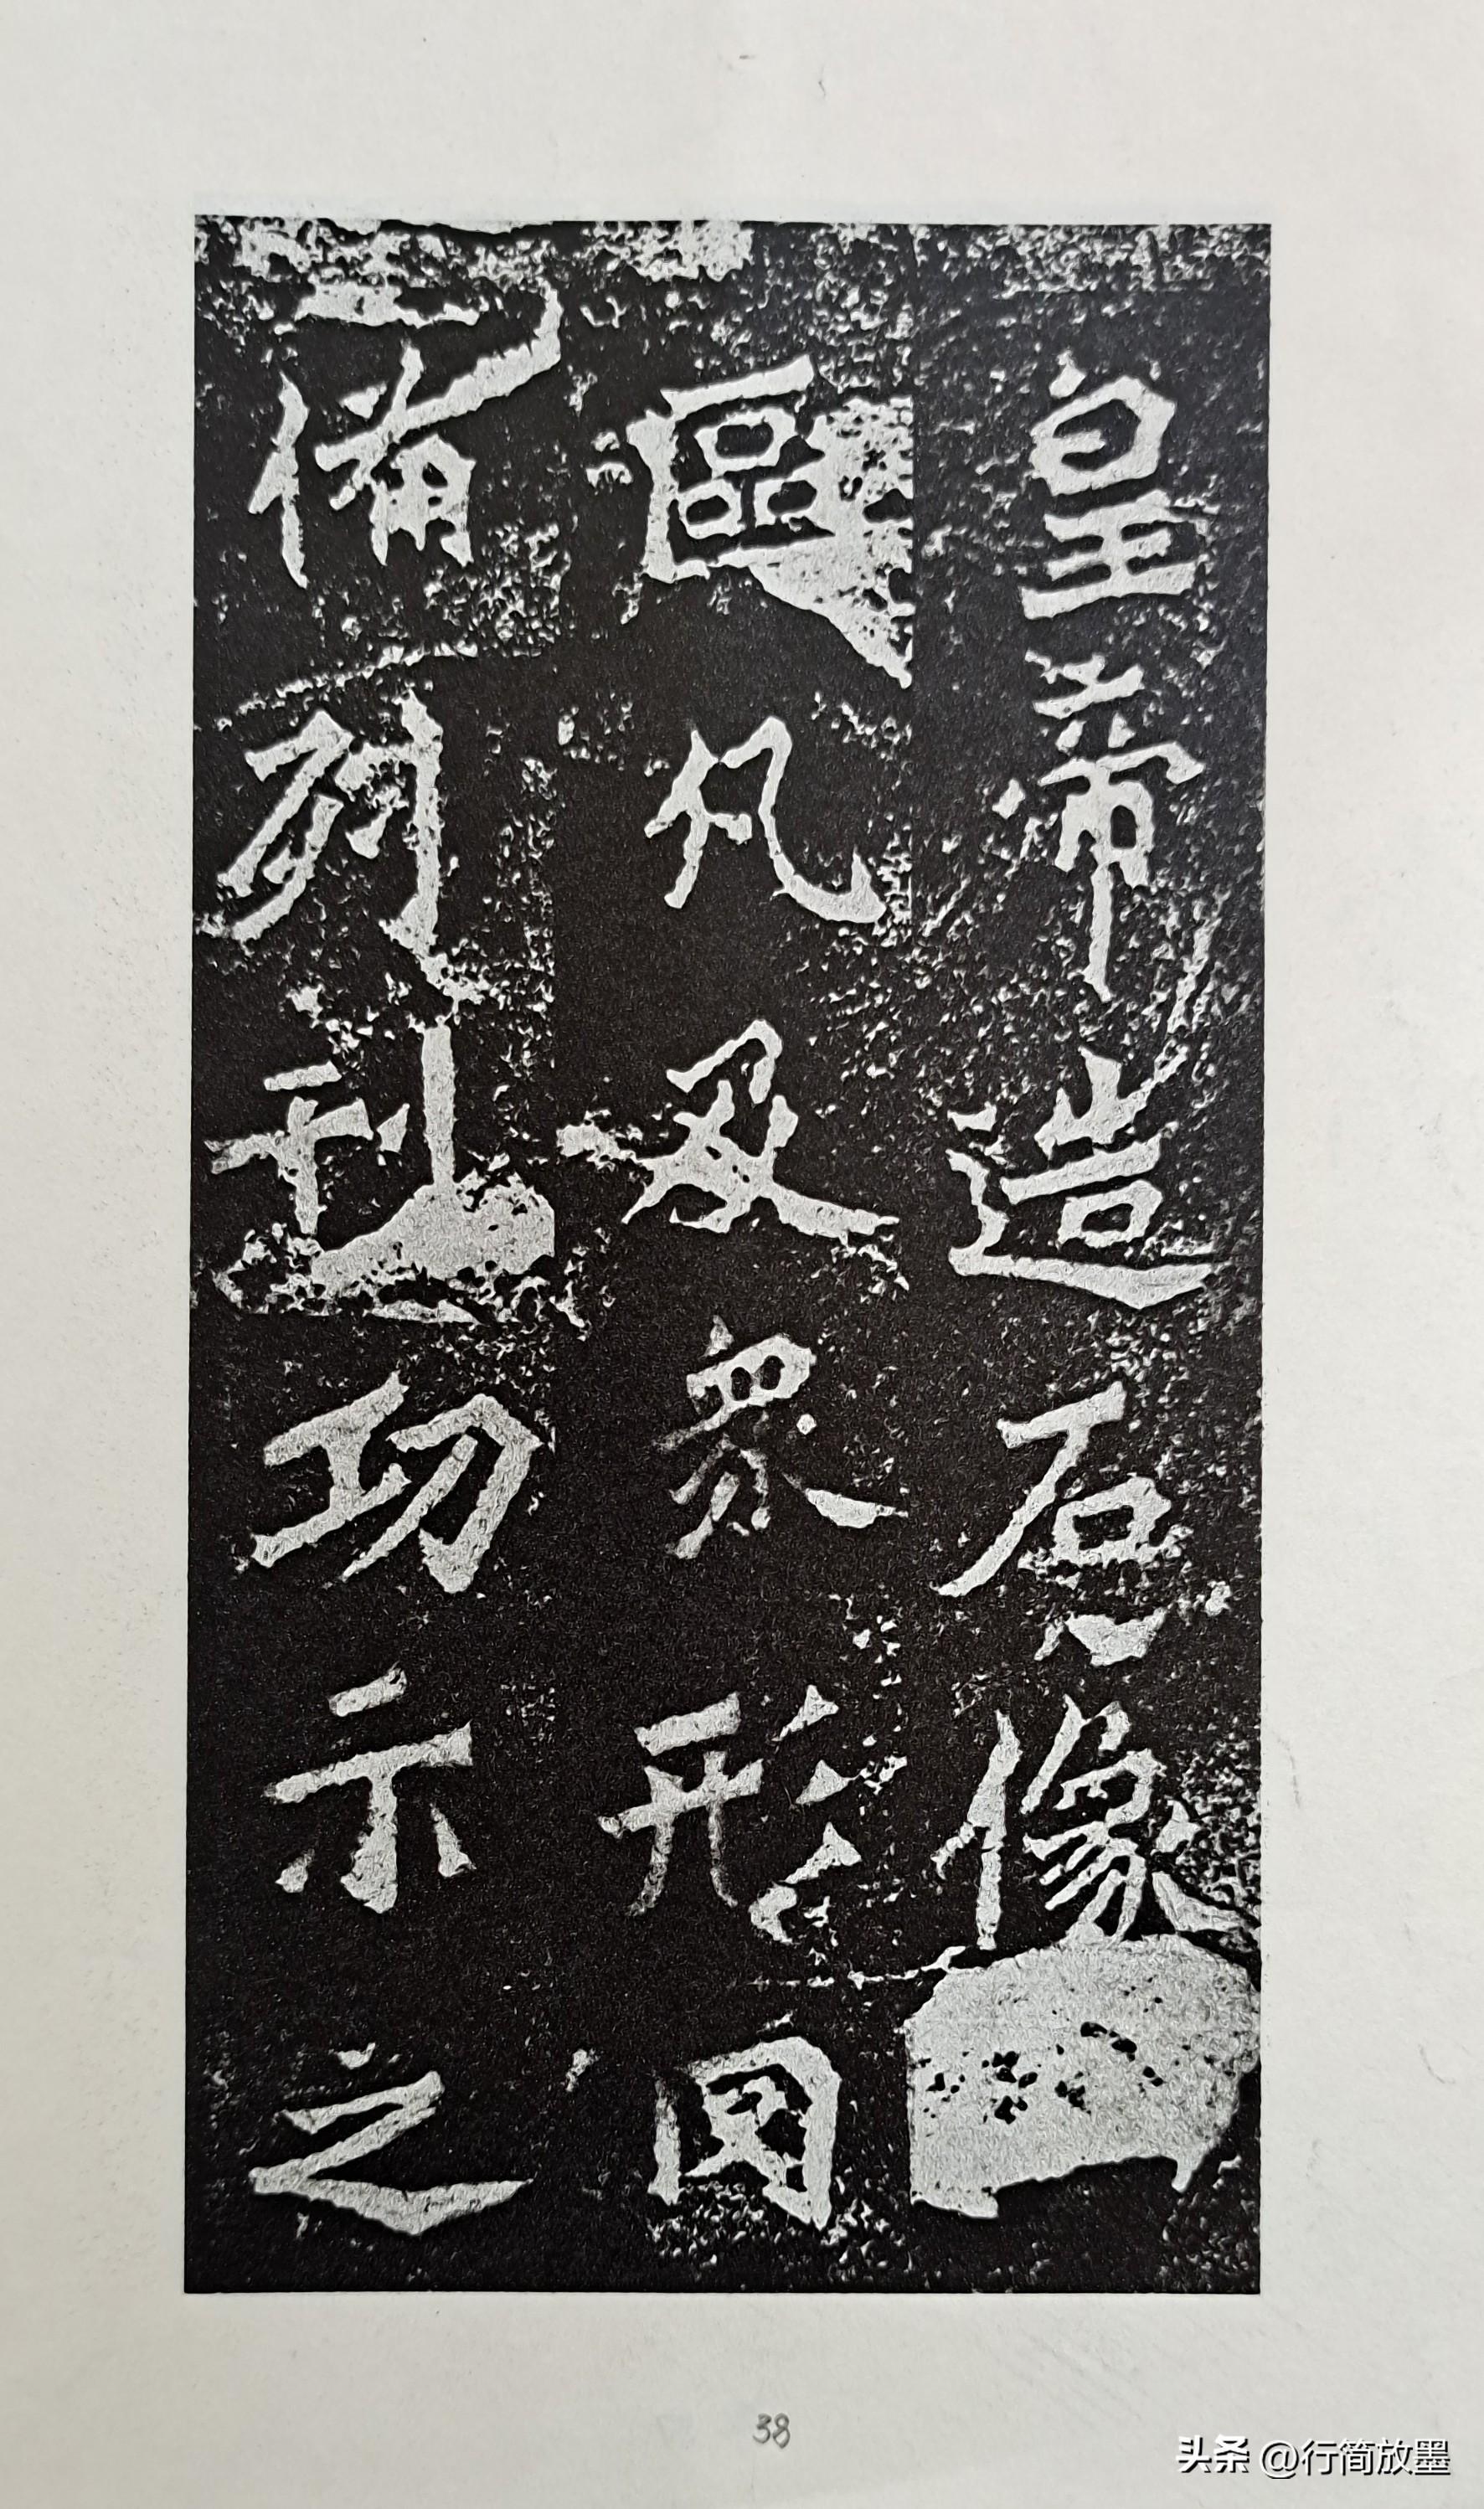 皇帝造石像
區凡及眾形罔
備列刊功示之
38
头条 @行简放墨